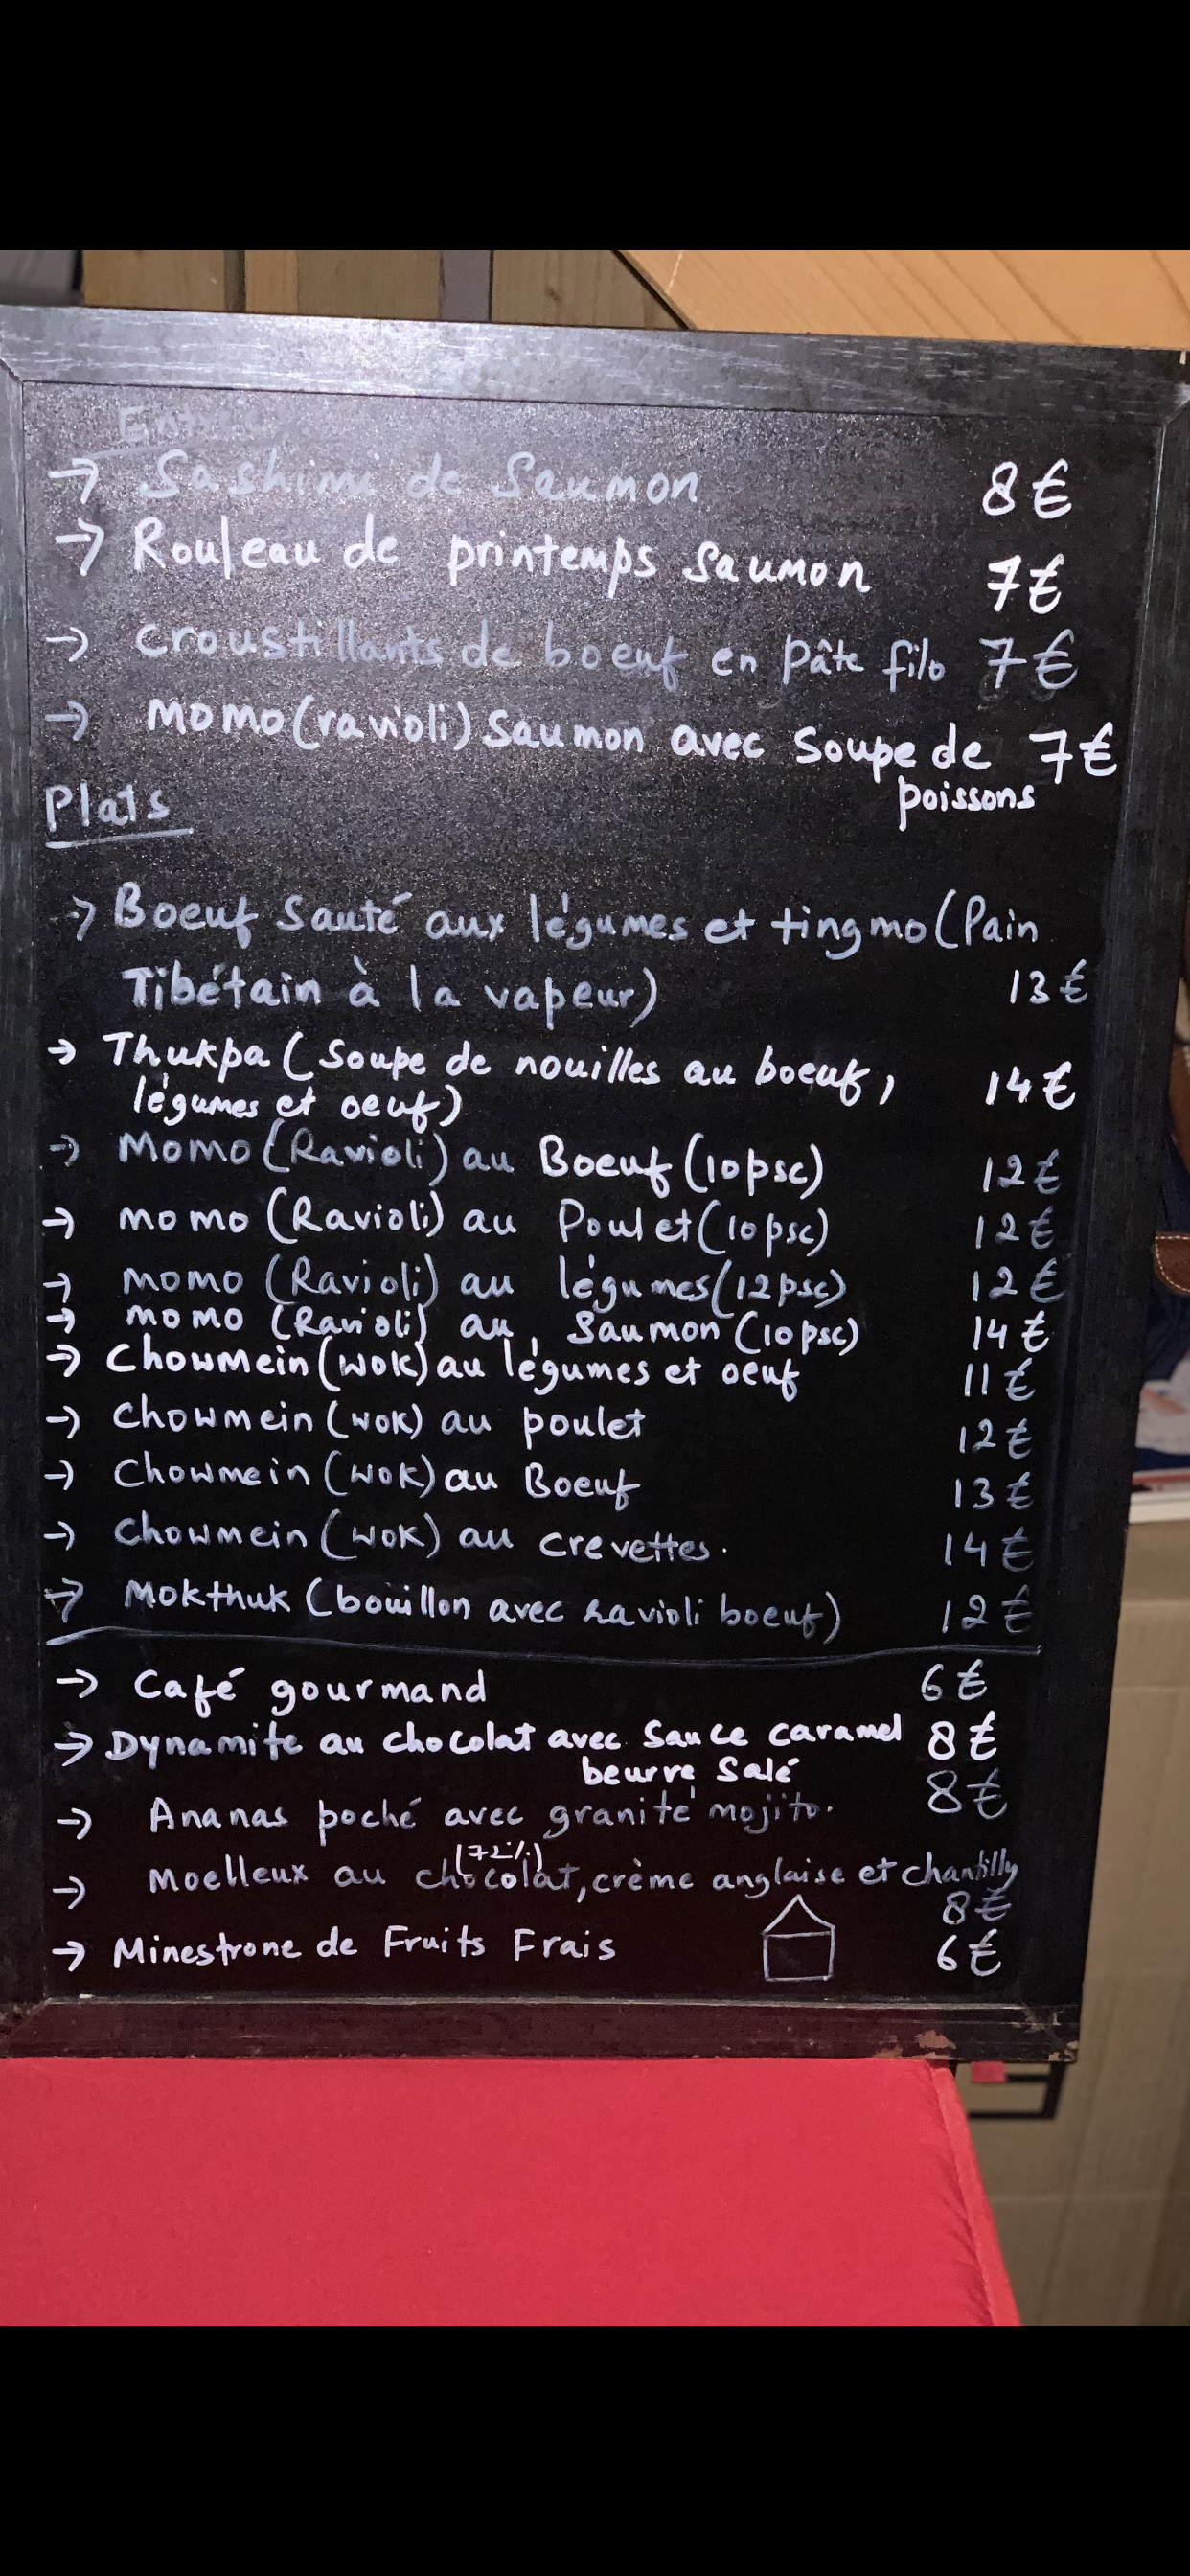 Entrée
→ Sashimi de Saumon 8€
→ Rouleau de printemps Saumon 7€
→ croustillants de boeuf en Pâte filo 7€
→ momo(ravioli) Saumon avec Soupe de 7€
poissons
Plats
→ Boeuf Sauté aux légumes et tingmo (Pain
Tibétain à la vapeur) 13€
→ Thukpa (Soupe de nouilles au boeuf, 14€
légumes et oeuf)
→ Momo (Ravioli) au Boeuf (10psc) 12€
→ momo (Ravioli) au Poulet (10psc) 12€
→ momo (Ravioli) au légumes (12psc) 12€
→ momo (Ravioli) au Saumon (10psc) 14€
→ ChowMein (wok) au légumes et oeuf 11€
→ Chowmein (wok) au poulet 12€
→ Chowmein (wok) au Boeuf 13€
→ Chowmein (wok) au crevettes. 14€
→ Mokthuk (bouillon avec ravioli boeuf) 12€
→ Café gourmand 6€
→ Dynamite au chocolat avec Sauce caramel 8€
beurre Salé
→ Ananas poché avec granité mojito. 8€
(72%)
→ Moelleux au chocolat, crème anglaise et chantilly
8€
→ Minestrone de Fruits Frais 6€